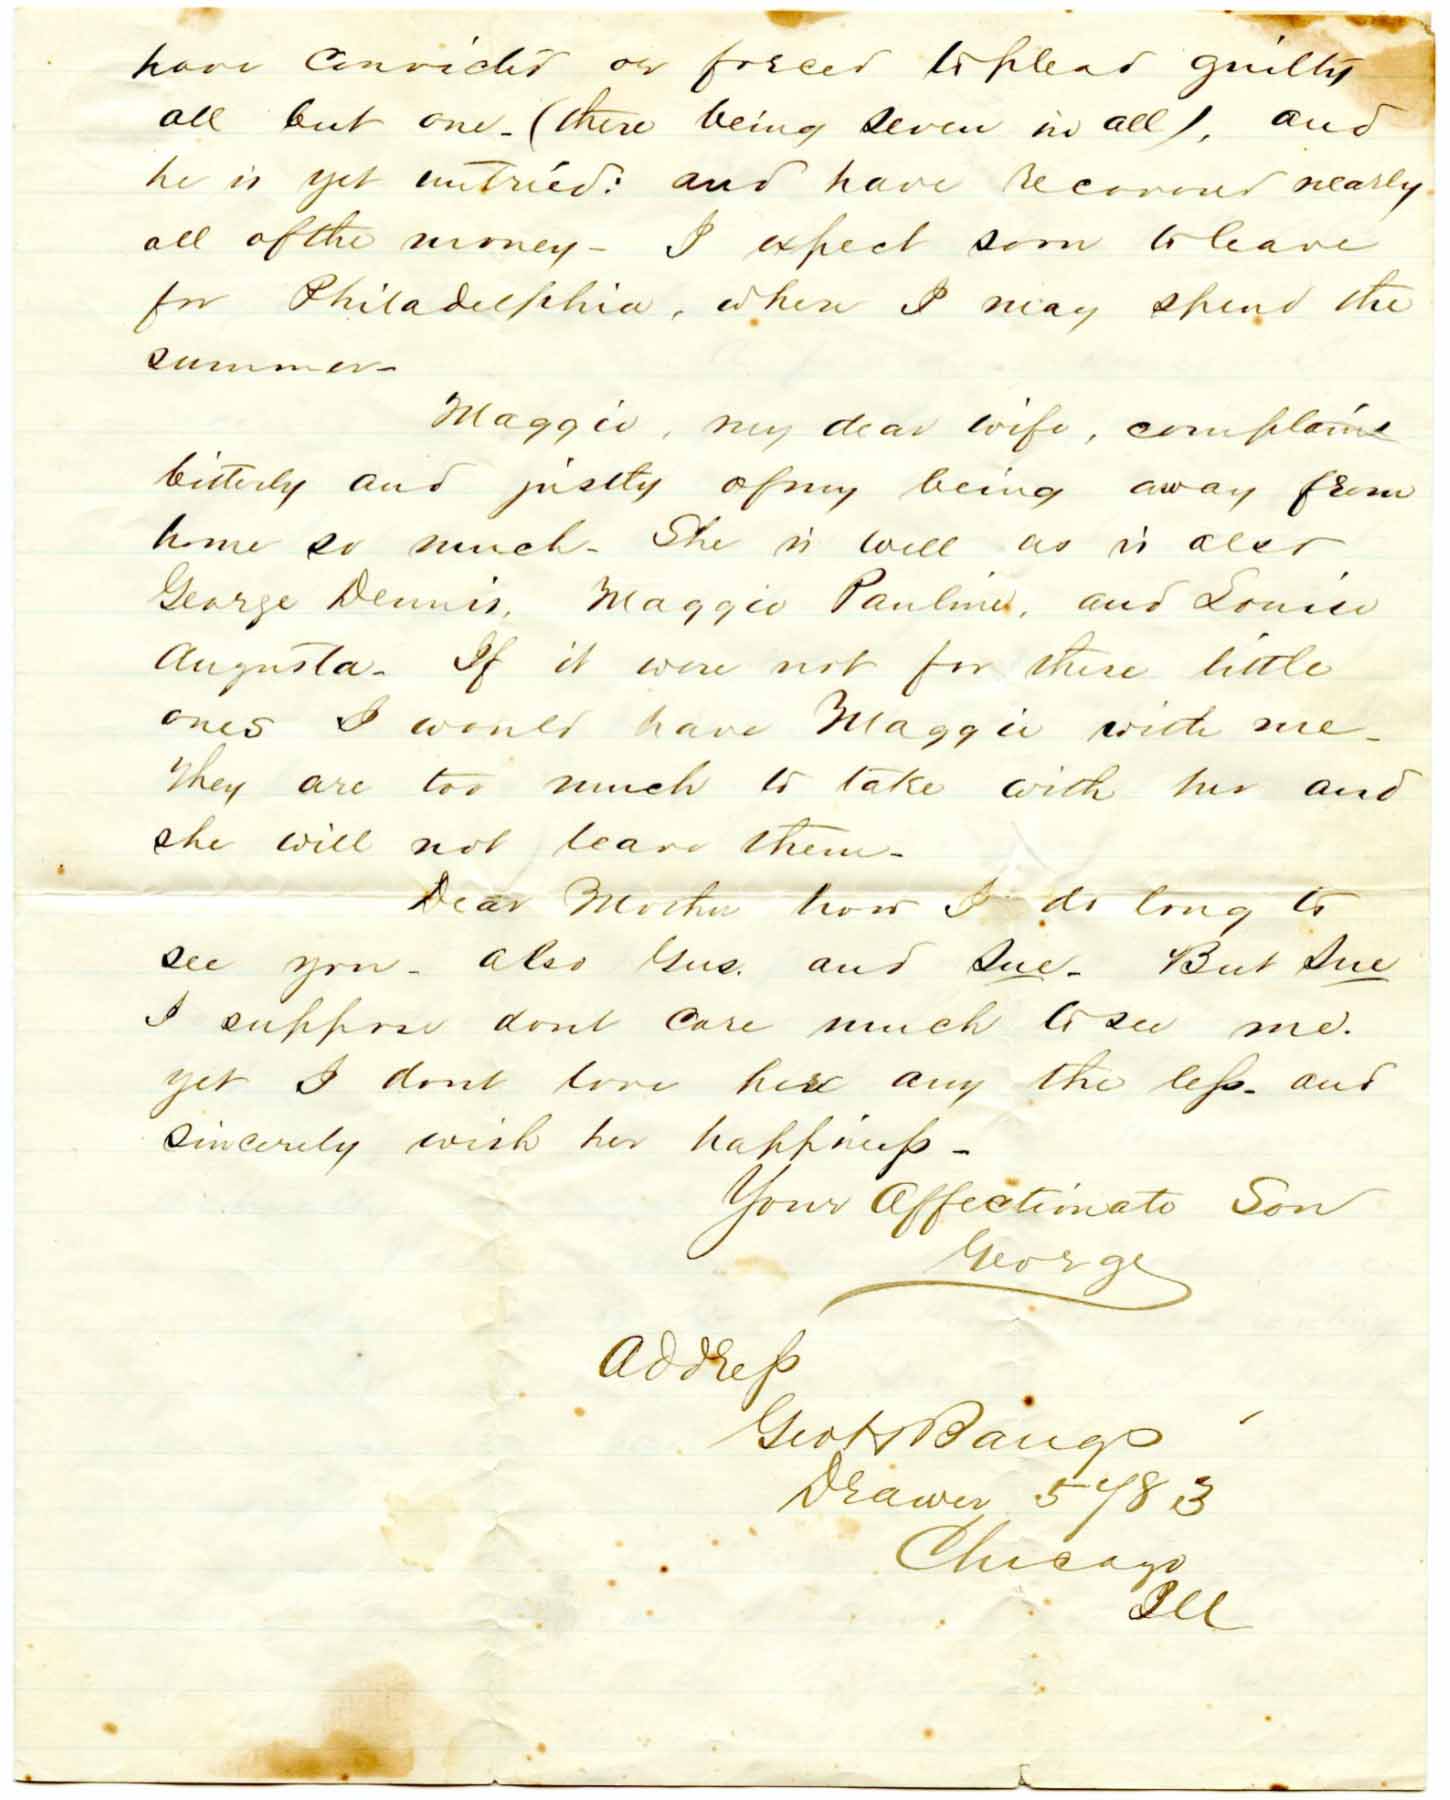 have convicted or forced to plead guilty
all but one - (there being seven in all), and
he is yet untried: and have recovered nearly
all of the money - I expect soon to leave
for Philadelphia, where I may spend the
summer -
Maggie, my dear wife, complains
bitterly and justly of my being away from
home so much - She is well as is also
George Dennis, Maggie Pauline, and Louise
Augusta - If it were not for these little
ones I would have Maggie with me -
They are too much to take with her and
she will not leave them -
Dear Mother how I do long to
see you - also Gus. and Sue - But Sue
I suppose dont care much to see me.
yet I dont love her any the less - and
sincerely wish her happiness -
Your Affectionate Son
George
Address
Geo H Bangs
Drawer 5783
Chicago
Ill